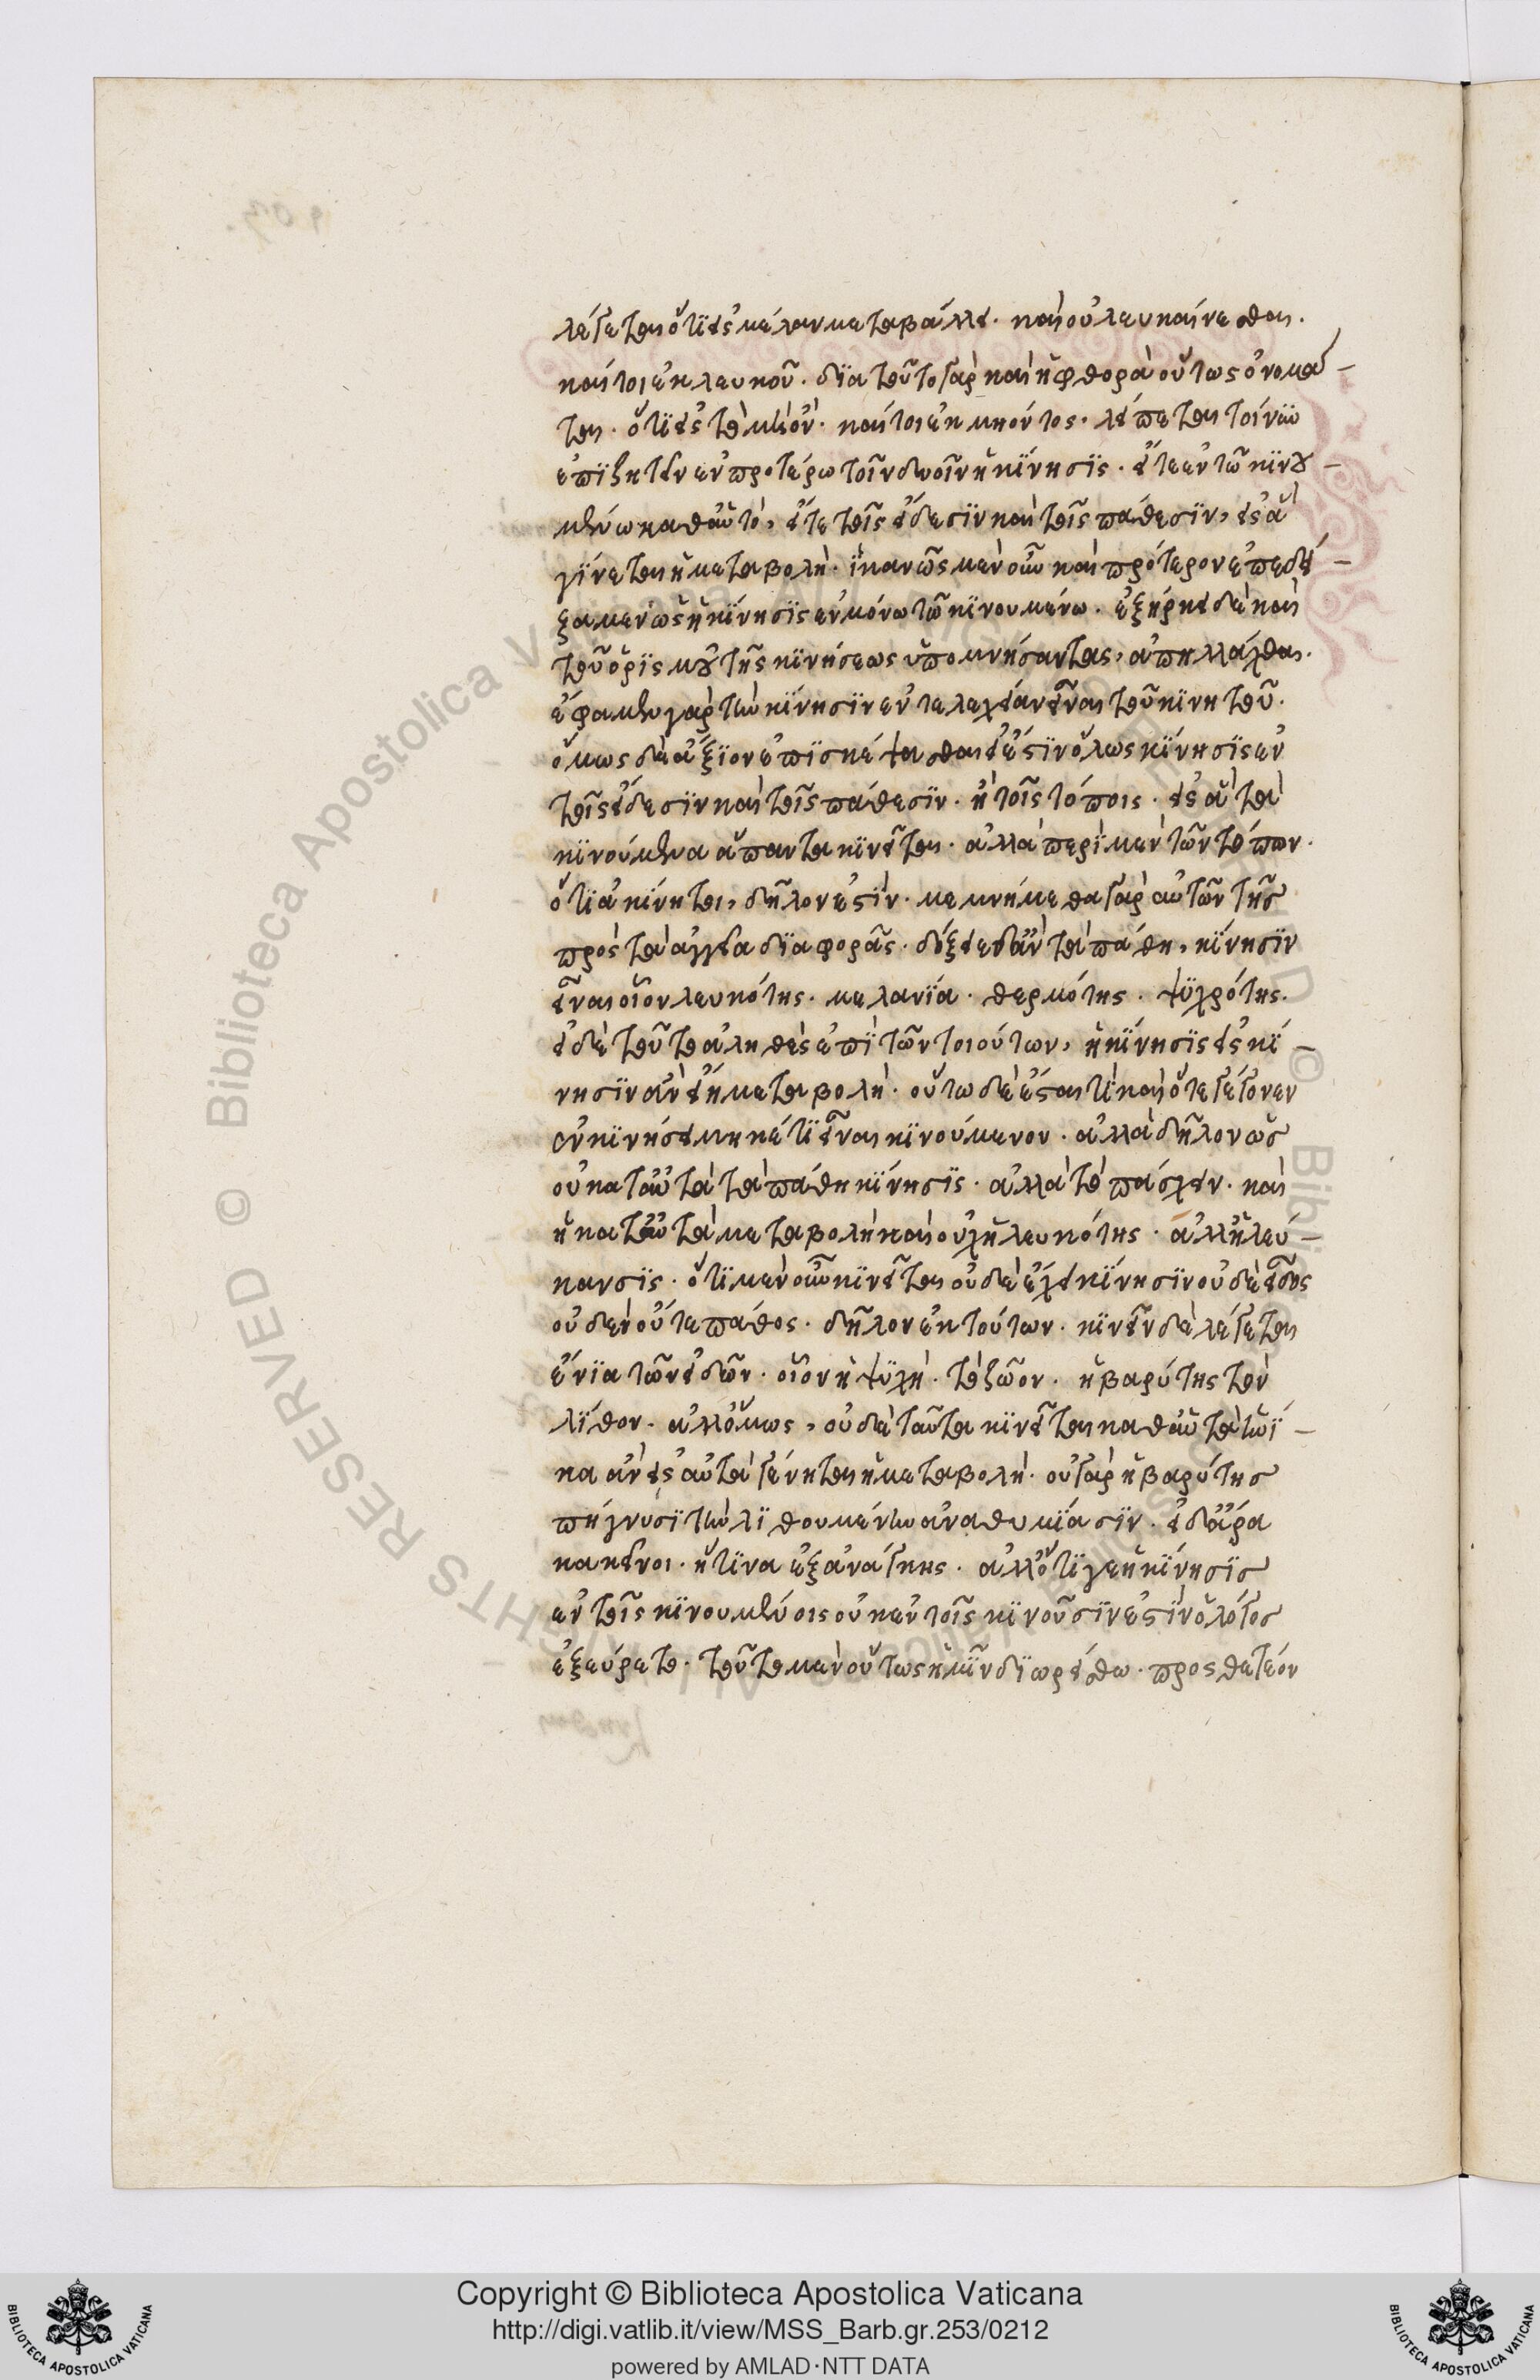 λέγεται ὅτι εἰς μέλαν μεταβάλλει. καὶ οὐ λευκαίνεσθαι.
καίτοι ἐκ λευκοῦ. διὰ τοῦτο γὰρ καὶ ἡ φθορὰ οὕτως ὀνομάζε-
ται. ὅτι εἰς τὸ μὴ ὄν. καίτοι ἐκ μὴ ὄντος. λείπεται τοίνυν
ἐπιζητεῖν ἐν προτέρω τοῖν δυοῖν ἡ κίνησις. εἴτε ἐν τῶ κινου-
μένω καθ' αὑτό, εἴτε τοῖς εἴδεσιν καὶ τοῖς πάθεσιν, εἰς ἃ
γίνεται ἡ μεταβολή. ἱκανῶς μὲν οὖν καὶ πρότερον ἐπεδεί-
ξαμεν ὡς ἡ κίνησις ἐν μόνω τῶ κινουμένω. ἐξήρκει δὲ καὶ
τοῦ ὁρισμοῦ τῆς κινήσεως ὑπομνήσαντας, ἀπηλλάχθαι.
ἔφαμεν γὰρ τὴν κίνησιν ἐντελέχειαν εἶναι τοῦ κινητοῦ.
ὅμως δὲ ἄξιον ἐπισκέψασθαι εἰ ἔστιν ὅλως κίνησις ἐν
τοῖς εἴδεσιν καὶ τοῖς πάθεσιν. ἢ τοῖς τόποις. εἰς ἃ τὰ
κινούμενα ἅπαντα κινεῖται. ἀλλὰ περὶ μὲν τῶν τόπων.
ὅτι ἀκίνητοι, δῆλόν ἐστιν. μεμνήμεθα γὰρ αὐτῶν τῆς
πρὸς τὰ ἀγγεῖα διαφορᾶς. δόξειε δ' ἂν τὰ πάθη, κίνησιν
εἶναι οἷον λευκότης. μελανία. θερμότης. ψυχρότης.
εἰ δὲ τοῦτο ἀληθὲς ἐπὶ τῶν τοιούτων, ἡ κίνησις εἰς κί-
νησιν ἂν εἴη μεταβολή. οὕτω δὲ ἔσται τὶ καὶ ὅτε γέγονεν
ἐν κινήσει μηκέτι εἶναι κινούμενον. ἀλλὰ δῆλον ὡς
οὐ κατ' αὐτὰ τὰ πάθη κίνησις. ἀλλὰ τὸ πάσχειν. καὶ
ἡ κατ' αὐτὰ μεταβολὴ καὶ οὐχ ἡ λευκότης. ἀλλ' ἡ λεύ-
κανσις. ὅτι μὲν οὖν κινεῖται οὐδὲ ἔχει κίνησιν οὐδὲ εἶδος
οὐδὲν οὔτε πάθος. δῆλον ἐκ τούτων. κινεῖν δὲ λέγεται
ἔνια τῶν εἰδῶν. οἷον ἡ ψυχὴ. τὸ ζῶον. ἡ βαρύτης τὸν
λίθον. ἀλλ' ὅμως, οὐδὲ ταῦτα κινεῖται καθ' αὑτὰ τὼ ἵ-
να ἂν εἰς αὐτὰ γένηται ἡ μεταβολή. οὐ γὰρ ἡ βαρύτης
πήγνυσι τὴν λιθουμένην ἀναθυμίασιν. εἰ δ' ἄρα
κἀκεῖνοι. ἥ τινα ἐξ ἀνάγκης. ἀλλ' ὅτι γε ἡ κίνησις
ἐν τοῖς κινουμένοις οὐκ ἐν τοῖς κινοῦσιν ἐστὶν ὁ λόγος
ἐξεύρετο. τοῦτο μὲν οὕτως ἡμῖν διωρίσθω. προσθετέον
Copyright © Biblioteca Apostolica Vaticana
http://digi.vatlib.it/view/MSS_Barb.gr.253/0212
powered by AMLAD·NTT DATA